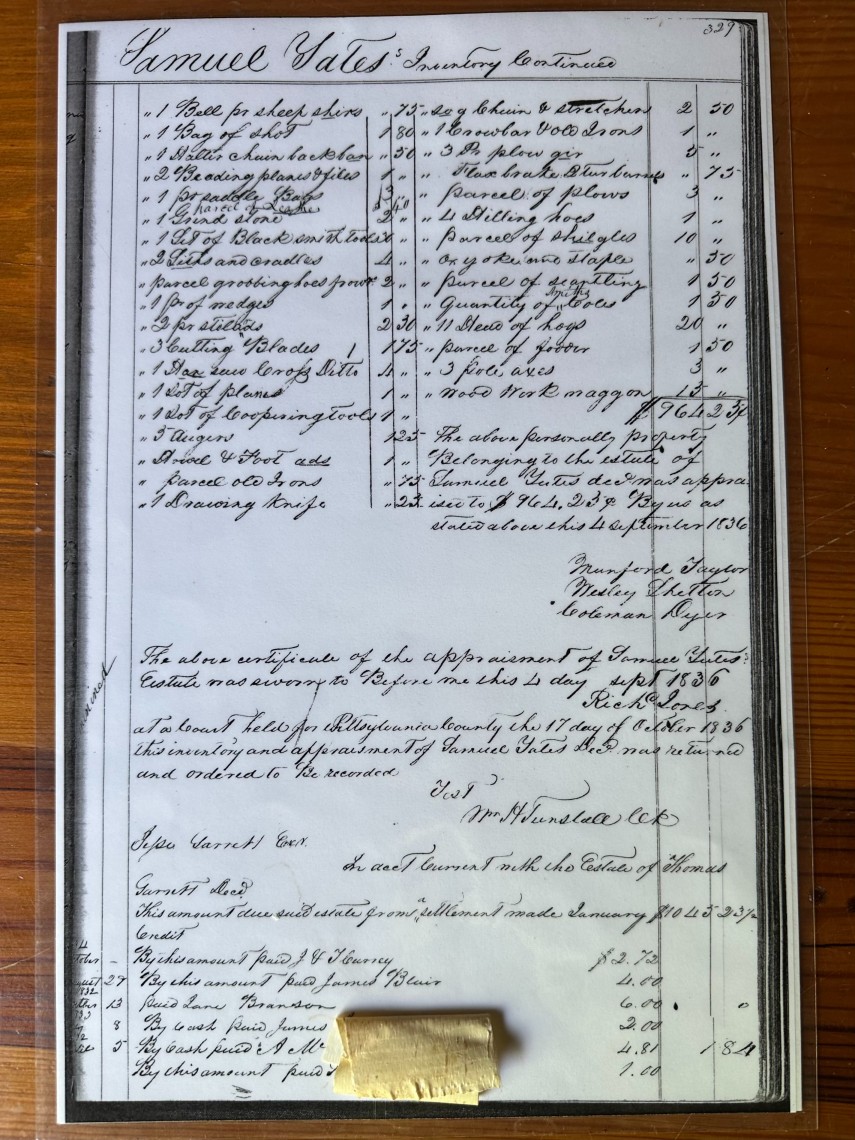 329
Samuel Yates's Inventory Continued
" 1 Bell pr sheep shirs " 75
" 1 Bag of shot 1 80
" 1 Halter chain back ban " 50
" 2 Beading planes & files 1 "
" 1 pr saddle Bags 3
parcel of Leather
" 1 Grind stone 2 "
" 1 Set of Black smith tools
" 2 Siths and cradles 4 "
" parcel groobing hoes 2 "
" 1 pr of wedges 1 "
" 2 pr stilads 2 30
" 3 Cutting Blades 1 75
" 1 saw Cross Ditto 4 "
" 1 Lot of planes 1 "
" 1 Lot of Coopering tools 1 "
" 5 Augers 1 25
" & Foot ads 1 "
" parcel old Irons " 75
" 1 Drawing knife " 25
Chain & stretchers 2 50
" 1 Crowbar & old Irons 1 "
" 3 Pr plow gir 5 "
" Flax brake & " 75
" parcel of plows 3 "
" 4 Hilling hoes 1 "
" parcel of shigles 10 "
" Ox yoke and staple " 50
" Parcel of scantling 1 50
" Quantity of smiths Coles 1 50
" 11 Head of hogs 20 "
" parcel of fodder 1 50
" 3 pole axes 3 "
" Wood Work waggon 15 "
$ 964 23¢
The above personally property
Belonging to the estate of
Samuel Yates decd was apprai
ised to $ 964.23¢ By us as
stated above this 4 september 1836
Munford Taylor
Wesley Shelton
Coleman Dyer
The above certificate of the appraisment of Samuel Yates'
Estate was sworn to Before me this 4 day sept 1836
Richd Jones
at a Court held for Pittsylvania County the 17 day of October 1836
this inventory and appraisment of Samuel Yates Decd was returned
and ordered to Be recorded
Test
Wm H Tunstall Clk
Jesse Garrett Exr.
In acct Current with the Estate of Thomas
Garrett Decd
This amount due said estate from a settlement made January $1045 23½
Credit
By this amount paid J & T Currey $ 2.72
29 By this amount paid James Blair 4.00
13 paid Lane Branson 6.00
8 By Cash paid James 2.00
5 By Cash paid A Mc 4.81 184
By this amount paid 1.00